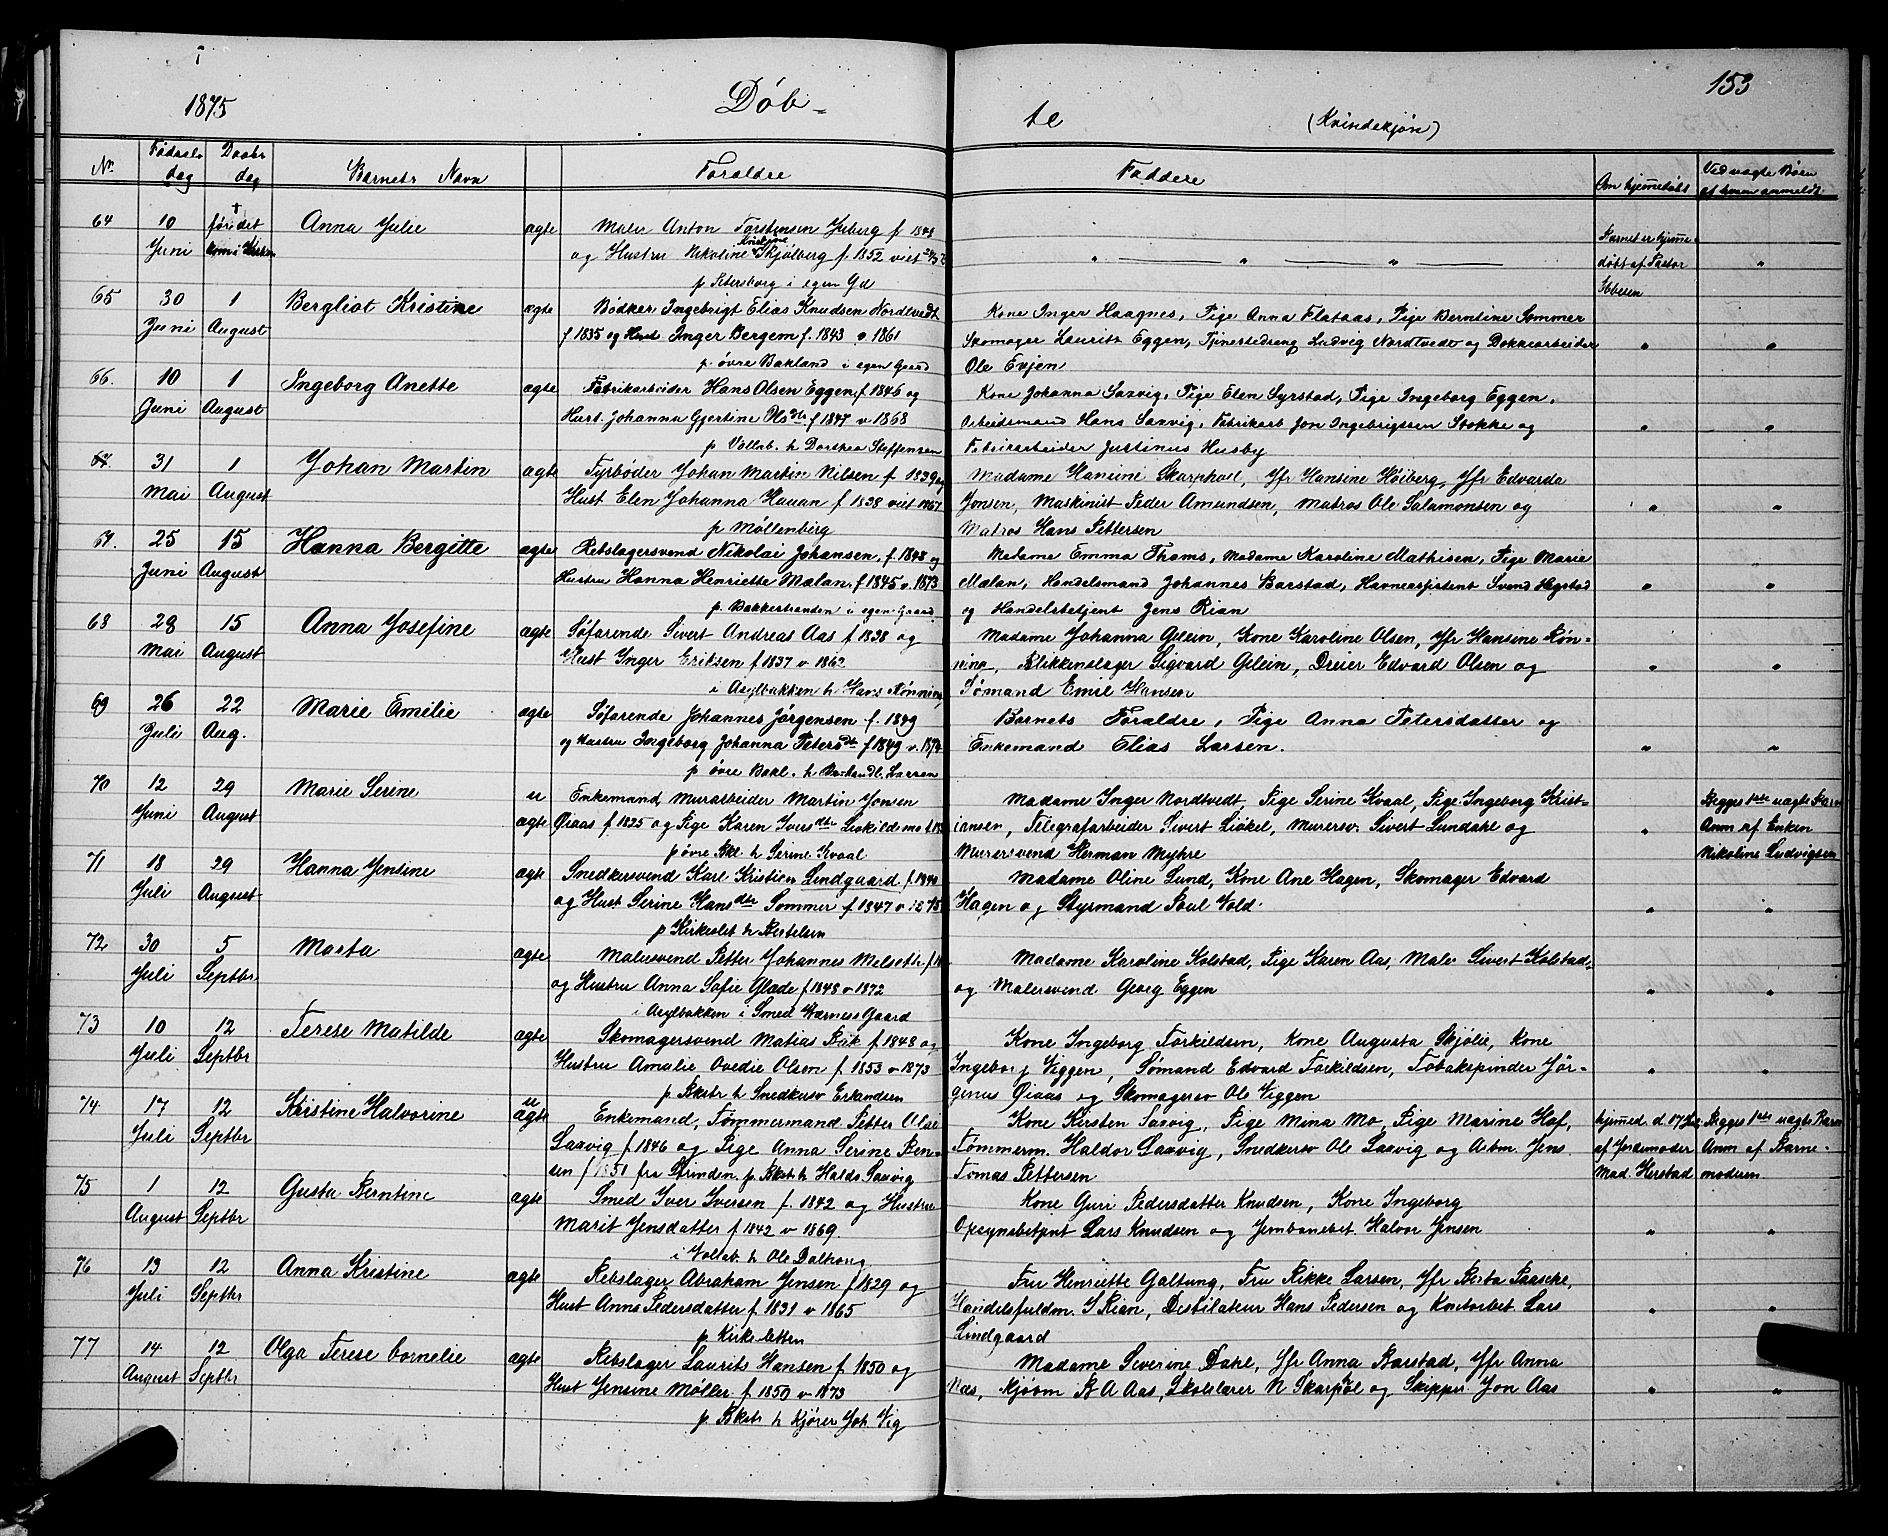 1875 Døb-
Nr. Fødsels dag Daabs dag Barnets Navn Forældre
64 10 Juni † før det kom i Kirken Anna Julie ægte Maler Anton Torstensen f. 1848
og Hustru Nikoline Kristine Skjølberg f. 1852 viet
p Petersborg i egen Gd
65 30 Juni 1 August Bergliot Kristine ægte Bødker Ingebrigt Elias Knudsen Nordtvedt
f 1835 og Hust Inger Bergem f. 1843 v 1861
p. øvre Bakland i egen Gaard
66. 10 Juni 1 August Ingeborg Anette ægte Fabrikarbeider Hans Olsen Eggen, f. 1846 og
Hust. Johanna Gjertine Olsdtr f 1847 v 1868
p Vollab. h Dorthea Steffensen
67 31 Mai 1 August Johan Martin ægte Fyrbøder Johan Martin Nilsen f 1839 og
Hust Elen Johanna Hauan f 1838 viet 1867
p Møllenberg
67. 25 Juni 15 August Hanna Bergitte ægte Rebslagersvend Nikolai Johansen, f. 1848 og
Hustru Hanna Henriette Mælan, f 1845 v. 1873
p. Bakkestranden i egen Gaard
68 28 Mai 15 August Anna Josefine ægte Søfarende Sivert Andreas Aas f 1838 og
Hust Inger Eriksen f 1837 v 1862
i Asylbakken h Hans Rønning
69 26 Juli 22 Aug. Marie Emilie ægte Søfarende Johannes Jørgensen f. 1849
og Hustru Ingeborg Johanna Petersdtr f 1849 v. 1874
p øvre Bakl. h Larsen
70 12 Juni 29 August Marie Serine uægte Enkemand Murarbeider Martin Jonsen
Øraas f 1825 og Pige Karen Iversdtr
p øvre Bkl h Serine Kvaal
71 18 Juli 29 August Hanna Jensine ægte Snedkersvend Karl Kristian Lindgaard f. 1840
og Hust Serine Hansdtr Sommer f 1847 v 1875
p Kirkeslet h Bertelsen
72 30 Juli 5 Septbr Marta ægte Malersvend Petter Johannes
og Hustru Anna Sofie Glade f 1848 v 1872
i Asylbakken i Smed Værnes Gaard
73 10 Juli 12 Septbr Terese Matilde ægte Skomagersvend Matias f 1848 og
Hustru Amalie Ovedie Olsen f 1853 v 1873
p Bkstr h Snedkersv Erlandsen
74 17 Juli 12 Septbr Kirstine Halvorine uægte Enkemand, Tømmermand Petter Olsen
Saxvig f 1846 og Pige Anna Serine Ben-
sen f 1851 fra Strinden p. Bkst h Haldo Saxvig
75 1 August 12 Septbr Gusta Berntine ægte Smed Iver Iversen f. 1842 og Hustru
Marit Jensdatter f 1842 v 1869.
i Vollab. h Ole Dalhoug
76 13 Juli 12 Septbr Anna Kristine ægte Rebslager Abraham Jensen f 1829 og
Hust Anna Pedersdatter f 1831 v 1865
p Kirkesletten
77 14 August 12 Septbr Olga Terese Cornelie ægte Rebslager Laurits Hansen f 1850 og
Hust Jensine Møller f 1850 v 1873
p Bkstr h Kjører Joh Vig
te (Kvindekjøn) 153
Faddere Om hjemmedøbt Ved uægte Børn af hvem anmeldt
" " " Barnet er hjemme-
døbt af Pastor "
Ibbesen
Kone Inger Haagnes, Pige Anna Flataas, Pige Berntine Sommer
Skomager Laurits Eggen, Tjenestedreng Ludvig Nordtvedt og Dokkearbeider " "
Ole Evjen
Kone Johanna Saxvig, Pige Elen Syrstad, Pige Ingeborg Eggen,
Arbeidsmand Hans Saxvig, Fabrikarb Jon Ingebrigtsen Stokke og " "
Fabrikarbeider Justinus Husby
Madame Hansine Skarphol, Jfr Hansine Høiberg, Jfr Edvarda
Jonsen, Maskinist Peder Amundsen, Matros Ole Salamonsen og " "
Matros Hans Pettersen
Madame Emma Thams, Madame Karoline Mathisen, Pige Marie
Mælan, Handelsmand Johannes Barstad, Havneassistent Svend Hegstad " "
og Handelsbetjent Jens Rian
Madame Johanna Gelein, Kone Karoline Olsen, Jfr Hansine Røn-
ning, Blikkenslager Sigvard Gelein, Dreier Edvard Olsen og " "
Sømand Emil Hansen
Barnets Forældre, Pige Anna Petersdatter og
Enkemand Elias Larsen. " "
Madame Inger Nordtvedt, Pige Serine Kvaal, Pige Ingeborg Krist- Begges 1ste uægte Barn
iansen, Telegrafarbeider Sivert Murersv. Sivert Lundahl og " Anm af Enken
Murersvend Herman Myhre Nikoline Ludvigsen
Madame Oline Lund, Kone Ane Hagen, Skomager Edvard
Hagen og Styrmand Poul Vold. " "
Madame Karoline Kolstad, Pige Karen Aas, Maler Sivert Kolstad,
og Malersvend Georg Eggen " "
Kone Ingeborg Torkildsen, Kone Augusta Skjølie, Kone
Ingeborg Viggen, Sømand Edvard Torkildsen, Tobakspinder Jør- " "
genus Øiaas og Skomagersv Ole Viggen
Kone Kirsten Saxvig, Pige Mina Mo, Pige Marine Hof, hjemmed. d. 17 Juli Begges 1ste uægte Barn
Tømmerm. Haldor Saxvig, Snedkersv Ole Saxvig og Arbm Jens af Jordemoder Anm af Barne-
Tomas Pettersen Mad. Herstad moderen
Kone Guri Pedersdatter Knudsen, Kone Ingeborg
Opsynsbetjent Lars Knudsen og Jernbanebet. Halvor Jensen " "
Fru Henriette Galtung, Fru Rikke Larsen, Jfr Berta Paasche,
Handelsfuldm. J Rian, Destilateur Hans Pedersen og Kontorbet Lars " "
Lindgaard
Madame Severine Dahl, Jfr Anna Barstad, Jfr Anna
Næs, Kjøbm B A Aas, Skolelærer N Skarphol og Skipper Jon Aas " "